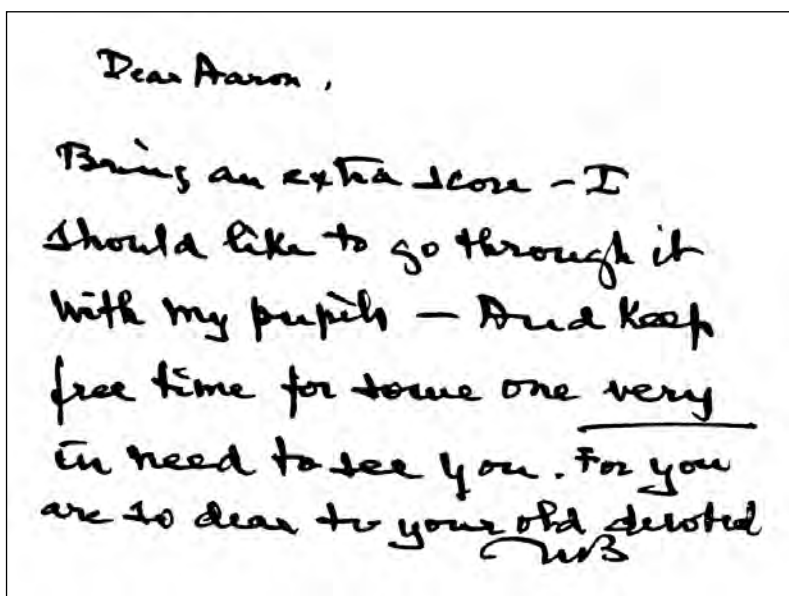 Dear Aaron,
Bring an extra score – I
should like to go through it
with my pupils – And keep
free time for some one very
in need to see you. For you
are so dear to your old devoted
NB